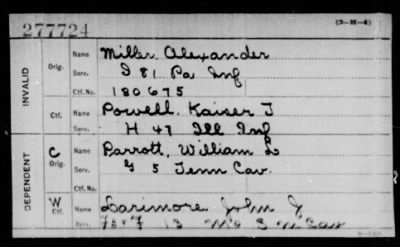 277724
(3-H-6)
INVALID
Orig.
Name Miller Alexander
Serv. I 81 Pa Inf
Ctf. No. 180675
Ctf.
Name Powell. Kaiser T
Serv. H 47 Ill Inf
DEPENDENT
C
Orig.
Name Parrott, William L
Serv. G 5 Tenn Cav.
Ctf. No.
W
Ctf.
Name Larimore John J
Serv. F 13 Mo S M Cav